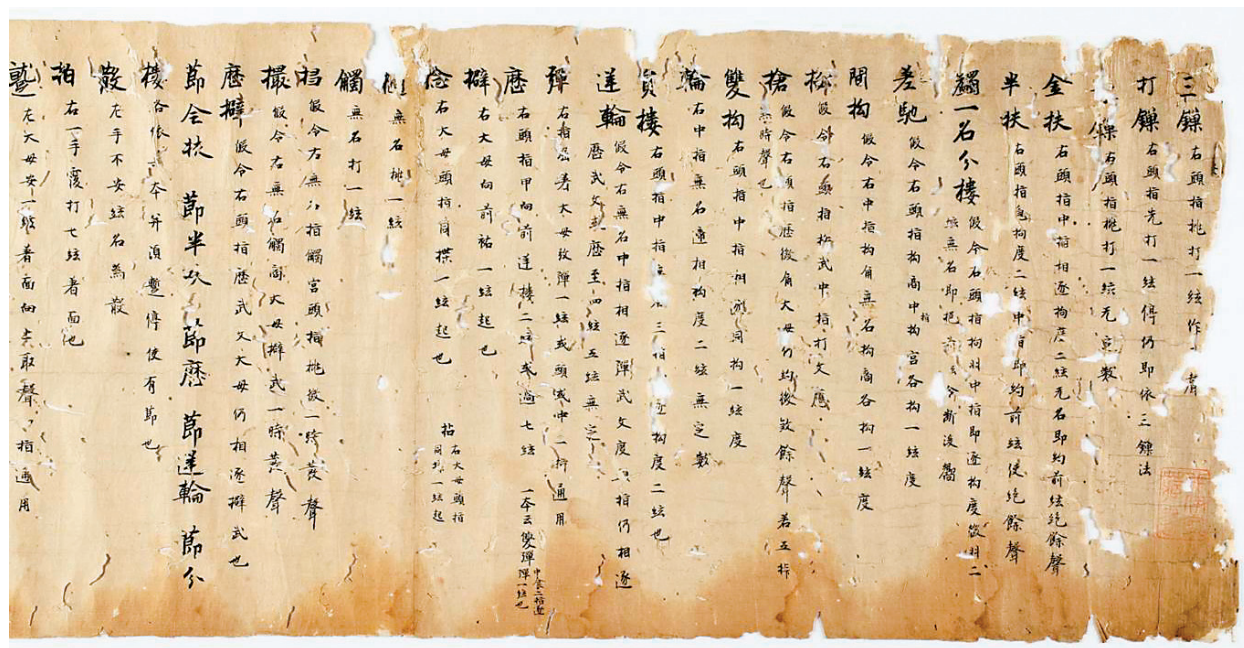 三鏁 右頭指桃打一絃作 者
打鏁 右頭指先打一絃停仍即依三鏁法
鏁 右頭指桃打一絃无定數
全扶 右頭指中指相逐拘度二絃无名即約前絃絕餘聲
半扶 右頭指 拘度二絃中指即約前絃使絕餘聲
蠲一名分樓 假令右頭指拘羽中指即逐拘度徵羽二
絃無名即 前 令斷後蠲
差馳 假令右頭指拘商中指拘宮各拘一絃度
間拘 假令右中指拘角無名拘商各拘一絃度
假令右頭指 武中指打文應
搶 假令右頭指歷徵角大母仍約徵致餘聲若五指
無時聲也
雙拘 右頭指中指相 同拘一絃度
輪 右中指無名 相拘度二絃無定數
員樓 右頭指中指 三 拘度二絃也
逆輪 假令右無名中指相逐彈武文度 指仍相逐
歷武文 歷至四絃五絃無定
彈 右指屈 大母致彈一絃或頭或中一指通用
歷 右頭指甲向前逆樓二絃或過七絃 一本云雙彈 中食二指 彈一絃也
擗 右大母向前 一絃起也
念 右大母頭指同 一絃起也 拈 右大母頭指 一絃起
無名桃一絃
觸 無名打一絃
假令右無名指觸宮頭指桃徵一時發聲
撮 假令右無名觸商大母擗武一時發聲
歷擗 假令右頭指歷武文大母仍相逐擗武也
節全扶 節半扶 節歷 節逆輪 節分
樓 各依 本 須蹔停使有節也
散 左手不安絃名為散
拍 右一手覆打七絃著面也
左大母安一 著面向 取聲 指通用